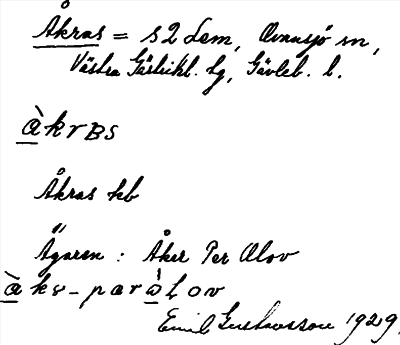 Åkras = s2 Lem, Ovansjö sn,
Västra Gästrikl. tg, Gävleb. l.
àkrBs
Åkras kb
Ägaren : Åker Per Olov
àkr-paràLov
Emil Gustavsson 1929.